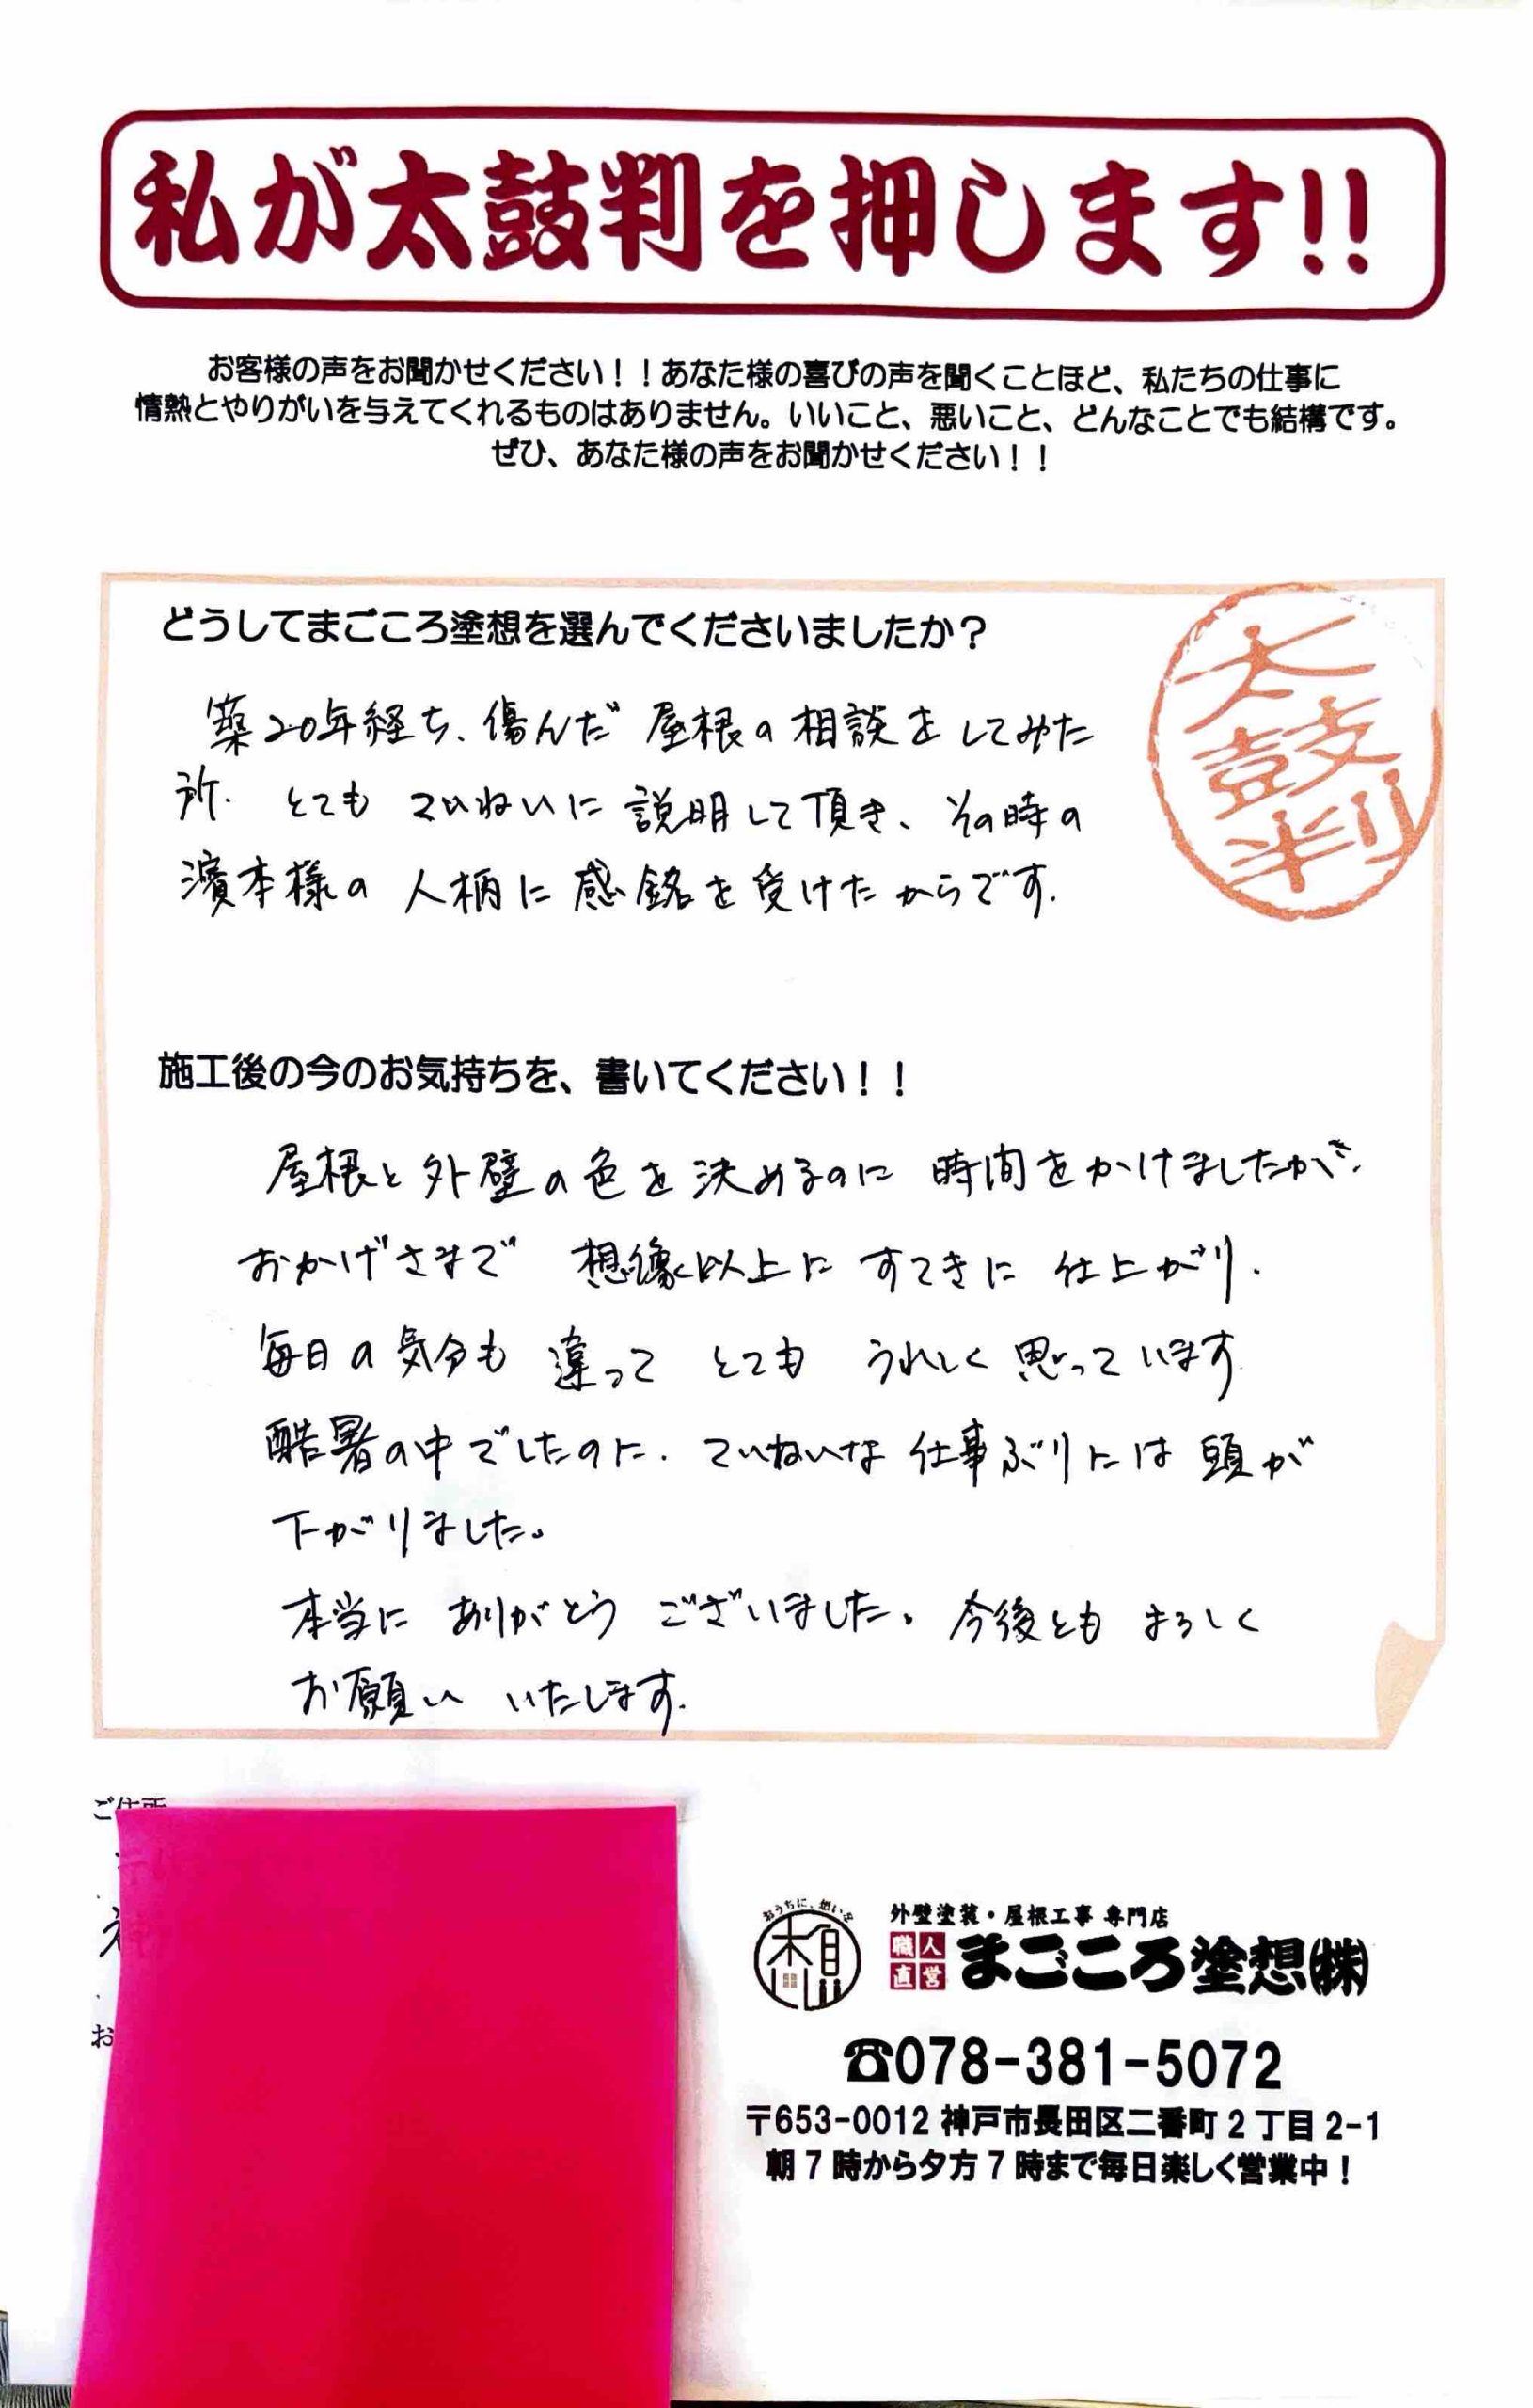 私が太鼓判を押します!!
お客様の声をお聞かせください！！あなた様の喜びの声を聞くことほど、私たちの仕事に
情熱とやりがいを与えてくれるものはありません。いいこと、悪いこと、どんなことでも結構です。
ぜひ、あなた様の声をお聞かせください！！
どうしてまごころ塗想を選んでくださいましたか？
太鼓判
築20年経ち、傷んだ 屋根の相談をしてみた
所、とても ていねいに 説明して頂き、その時の
濱本様の 人柄に 感銘を受けたからです。
施工後の今のお気持ちを、書いてください！！
屋根と外壁の色を決めるのに 時間をかけましたが、
おかげさまで 想像以上に すてきに 仕上がり、
毎日の気分も 違って とても うれしく思っています
酷暑の中でしたのに、ていねいな 仕事ぶりには 頭が
下がりました。
本当に ありがとう ございました。今後とも よろしく
お願い いたします。
ご住所
お
おうちに、想いを
想
外壁塗装・屋根工事 専門店
職人直営 まごころ塗想㈱
☎078-381-5072
〒653-0012 神戸市長田区二番町2丁目2-1
朝7時から夕方7時まで毎日楽しく営業中！